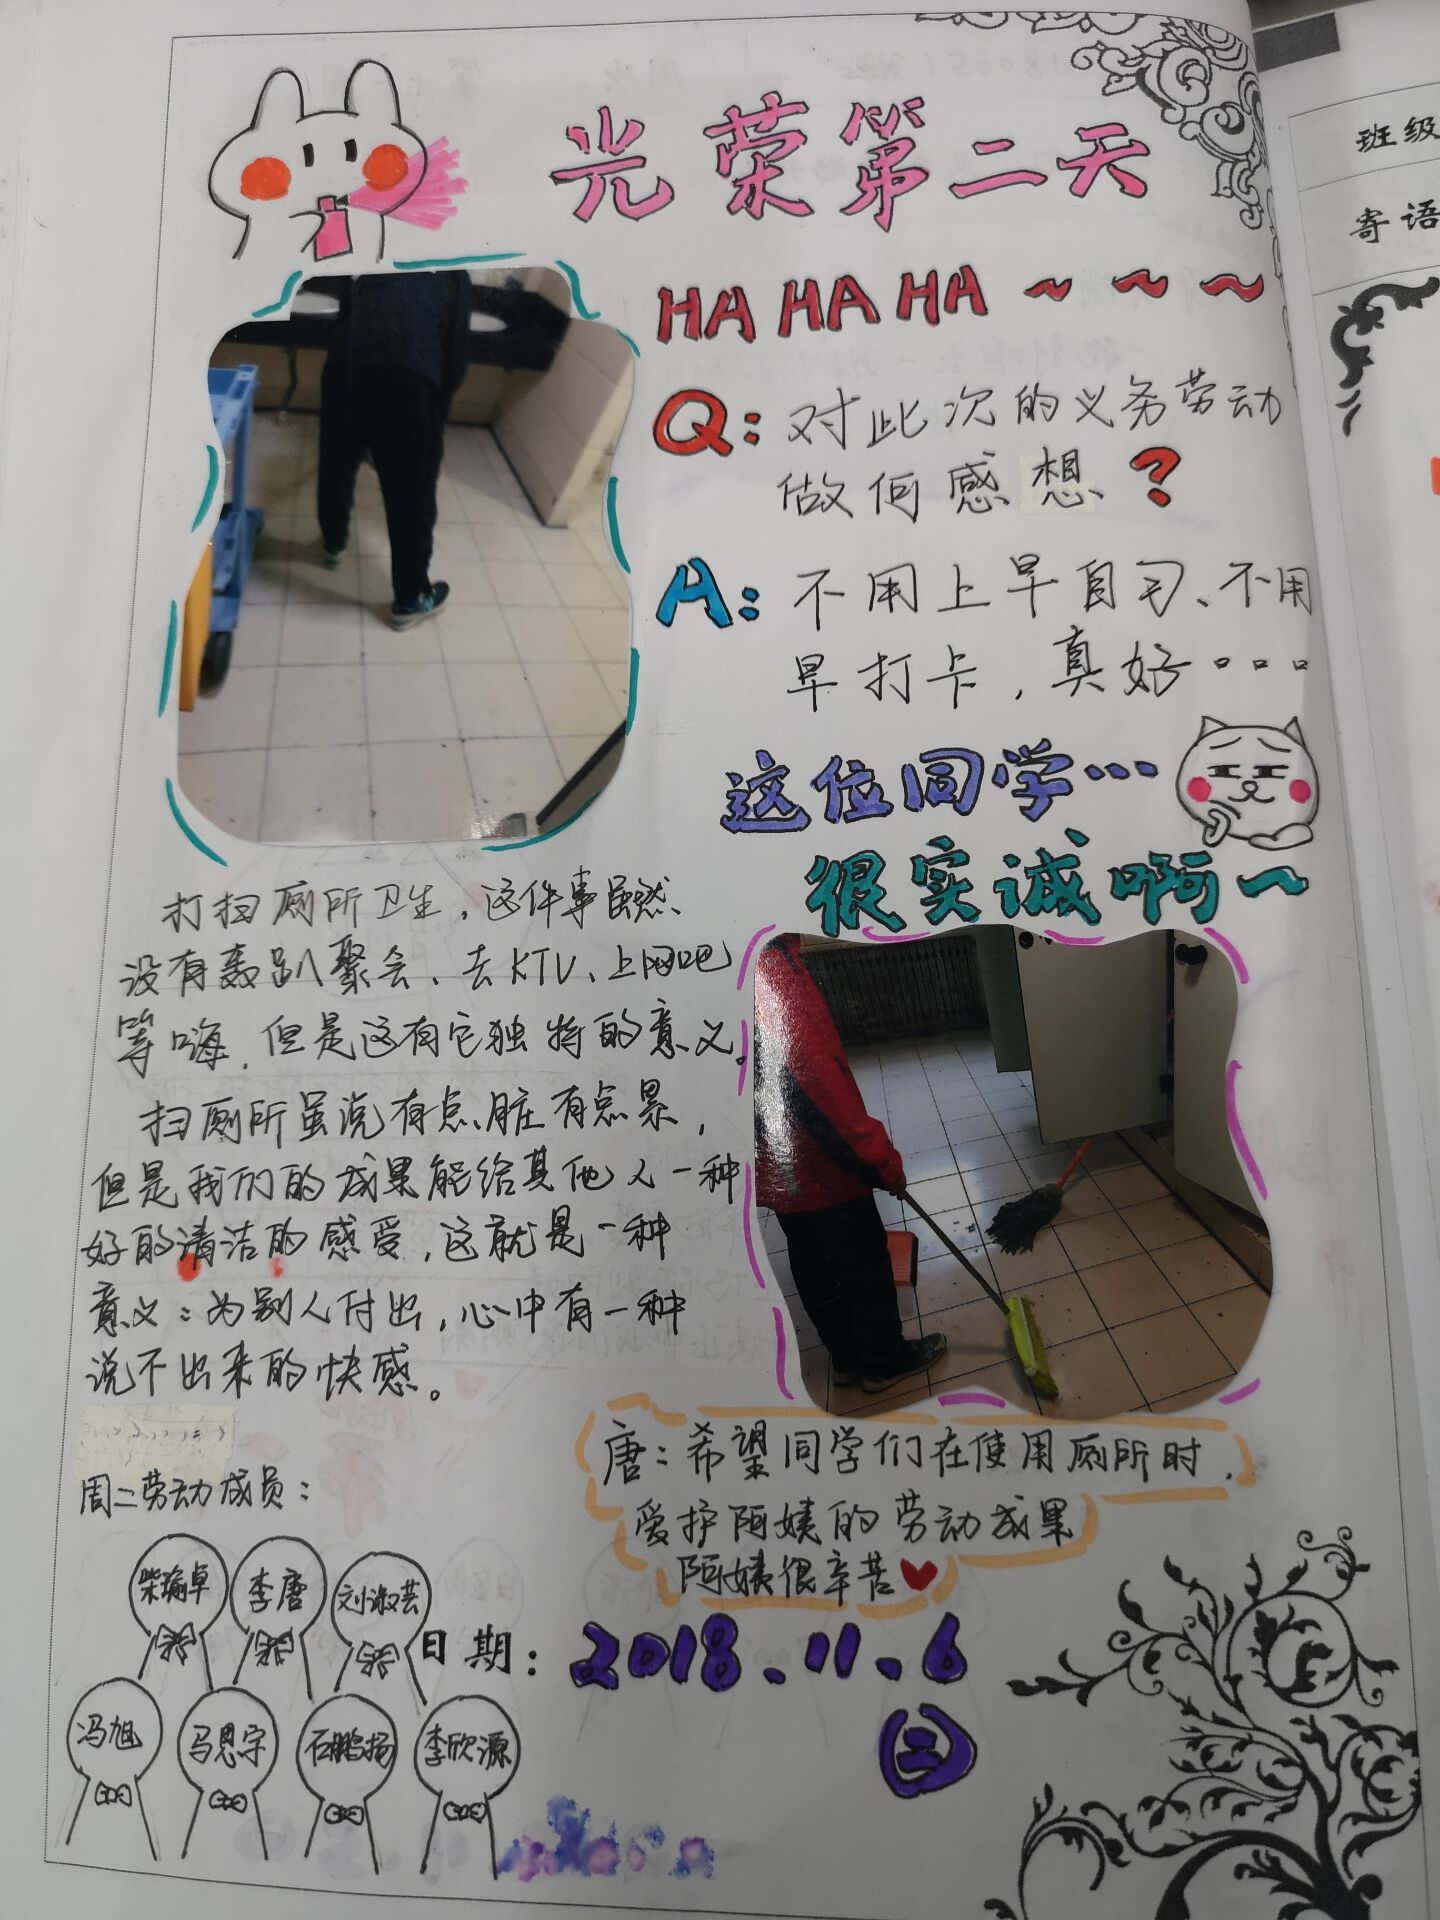 光荣第二天
HA HA HA ~ ~ ~
Q: 对此次的义务劳动
做何感想?
A: 不用上早自习、不用
早打卡，真好。。。
这位同学…
很实诚啊~
打扫厕所卫生，这件事虽然
没有轰趴聚会、去KTV、上网吧
等嗨，但是这有它独特的意义。
扫厕所虽说有点脏有点累，
但是我们的成果能给其他人一种
好的清洁的感受，这就是一种
意义：为别人付出，心中有一种
说不出来的快感。
唐：希望同学们在使用厕所时，
爱护阿姨的劳动成果
阿姨很辛苦
周二劳动成员：
李唐 刘淑芸
日期：2018.11.6
二
冯旭 马思宇 石鹏扬 李欣源
班级
寄语